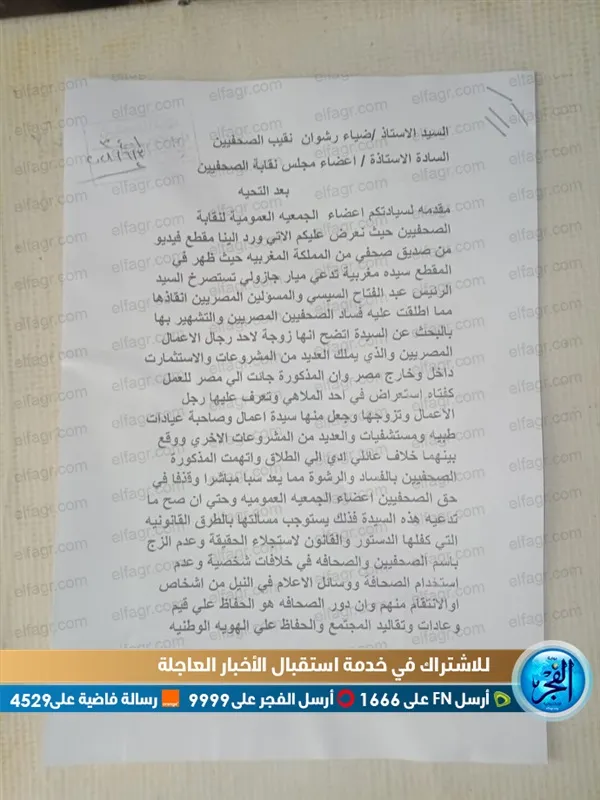 السيد الاستاذ /ضياء رشوان نقيب الصحفيين
السادة الاستاذة / اعضاء مجلس نقابة الصحفيين
بعد التحيه
مقدمه لسيادتكم اعضاء الجمعيه العمومية لنقابة
الصحفيين حيث نعرض عليكم الاتي ورد الينا مقطع فيديو
من صديق صحفي من المملكة المغربيه حيث ظهر في
المقطع سيده مغربية تدعي ميار جازولي تستصرخ السيد
الرئيس عبد الفتاح السيسي والمسؤلين المصريين انقاذها
مما اطلقت عليه فساد الصحفيين المصريين والتشهير بها
بالبحث عن السيدة اتضح انها زوجة لاحد رجال الاعمال
المصريين والذي يملك العديد من المشروعات والاستثمارت
داخل وخارج مصر وان المذكورة جائت الي مصر للعمل
كفتاه إستعراض في احد الملاهي وتعرف عليها رجل
الاعمال وتزوجها وجعل منها سيدة اعمال وصاحبة عيادات
طبيه ومستشفيات والعديد من المشروعات الاخري ووقع
بينهما خلاف عائلي ادي الي الطلاق واتهمت المذكورة
الصحفيين بالفساد والرشوة مما يعد سبا مباشرا وقذفا في
حق الصحفيين اعضاء الجمعيه العموميه وحتي ان صح ما
تدعيه هذه السيدة فذلك يستوجب مسالتها بالطرق القانونيه
التي كفلها الدستور والقانون لاستجلاء الحقيقة وعدم الزج
باسم الصحفيين والصحافه في خلافات شخصية وعدم
إستخدام الصحافة ووسائل الاعلام في النيل من اشخاص
اوالانتقام منهم وان دور الصحافه هو الحفاظ علي قيم
وعادات وتقاليد المجتمع والحفاظ علي الهويه الوطنيه
للاشتراك في خدمة استقبال الأخبار العاجلة
أرسل FN على 1666 أرسل الفجر على 9999 رسالة فاضية على 4529
الفجر
elfagr.com